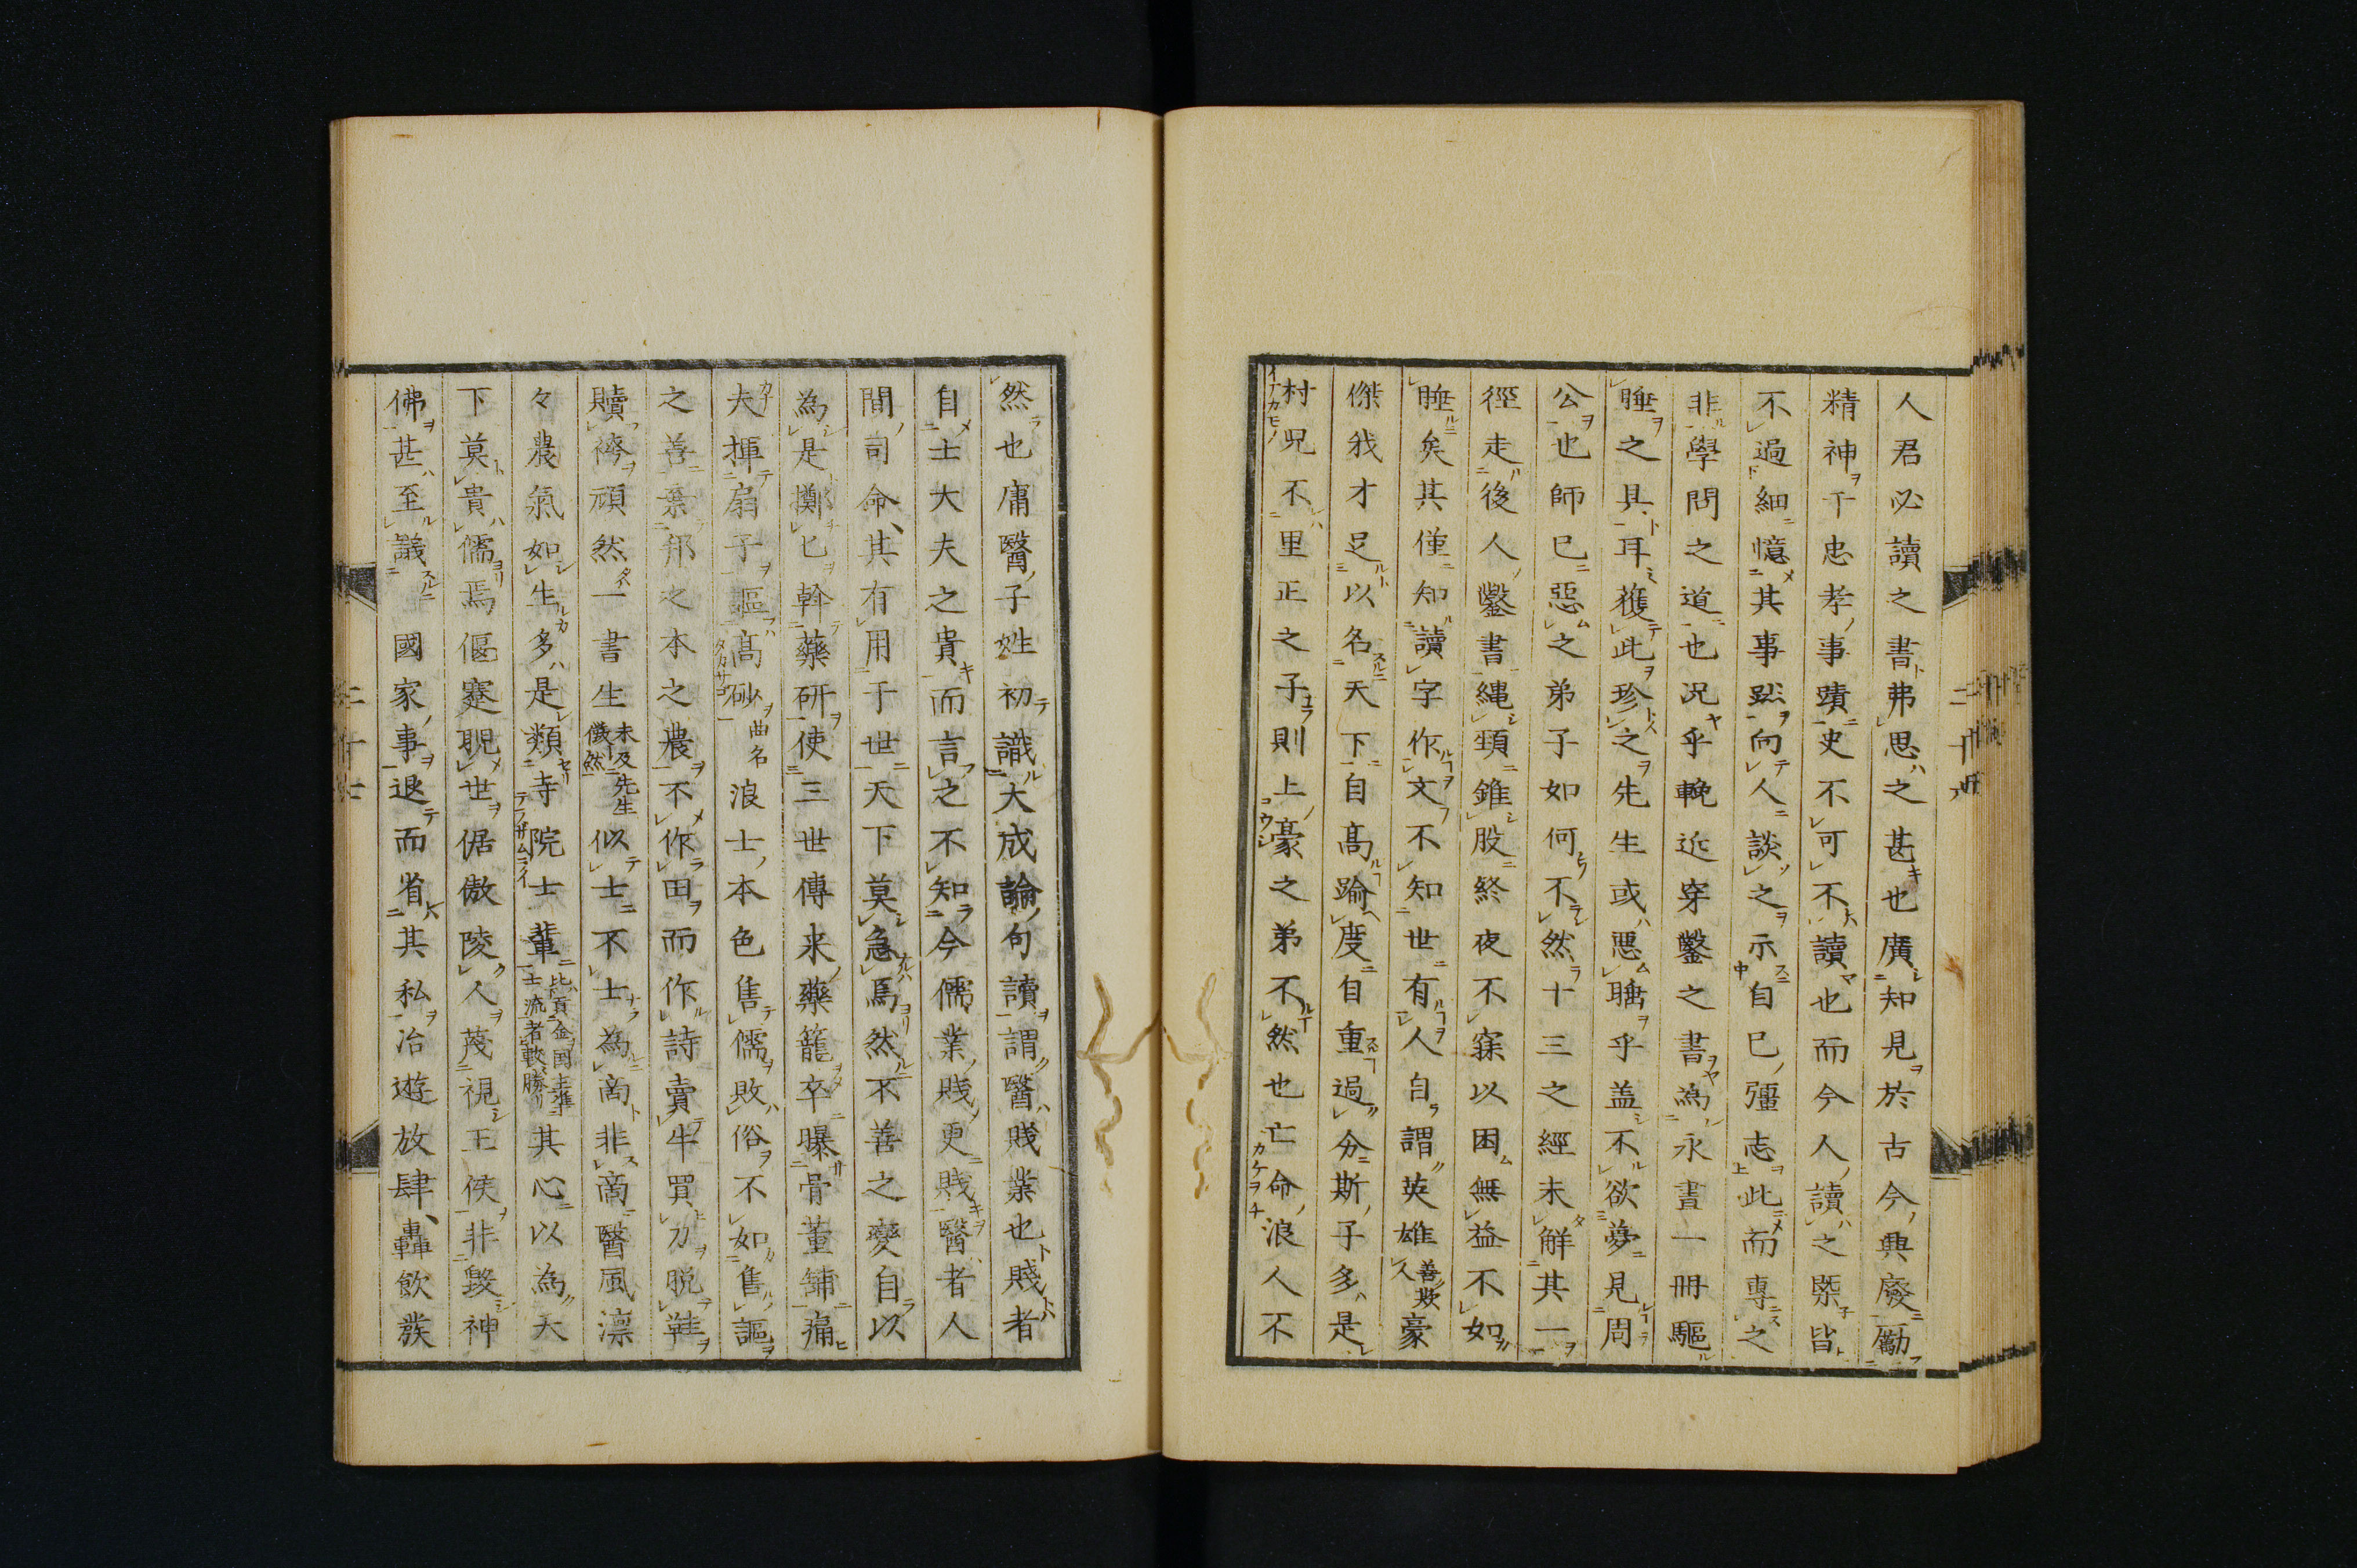 人君必讀之書弗思之甚也廣知見於古今興廢勵
精神于忠孝事蹟史不可不讀也而今人讀之槩皆
不過細憶其事跡向人談之示自己彊志此而專之
非學問之道也況乎輓近穿鑿之書為永晝一冊驅
睡之具耳獲此珍之先生或惡睡乎盖不欲夢見周
公也師已惡之弟子如何不然十三之經未解其一
徑走後人鑿書繩頸錐股終夜不寐以困無益不如
睡矣其僅知讀字作文不知世有人自謂英雄善欺人豪
傑我才足以名天下自髙踰度自重過分斯子多是
村兕不里正之子則上豪之弟不然也亡命浪人不
然也庸醫子姓初識大成論句讀謂醫賤業也賤者
自士大夫之貴而言之不知今儒業賤更賤醫者人
間司命其有用于世天下莫急焉然不善之變自以
為是擲匕斡藥研使三世傳来藥籠卒曝骨董鋪痛
夫揮扇子謳髙砂曲名浪士本色售儒敗俗不如售謳
之善棄邦之本之農不作田而作詩賣牛買刀脱鞋
贖袴頑然一書生未及先生儀然似士不士為商非商醫風凛
々農氣如生多是類寺院士輩比貢金国主準士流者較勝其心以為天
下莫貴儒焉傴蹇睨世倨傲陵人蔑視王侯非毀神
佛甚至議國家事退而省其私冶遊放肆轟飲蔟